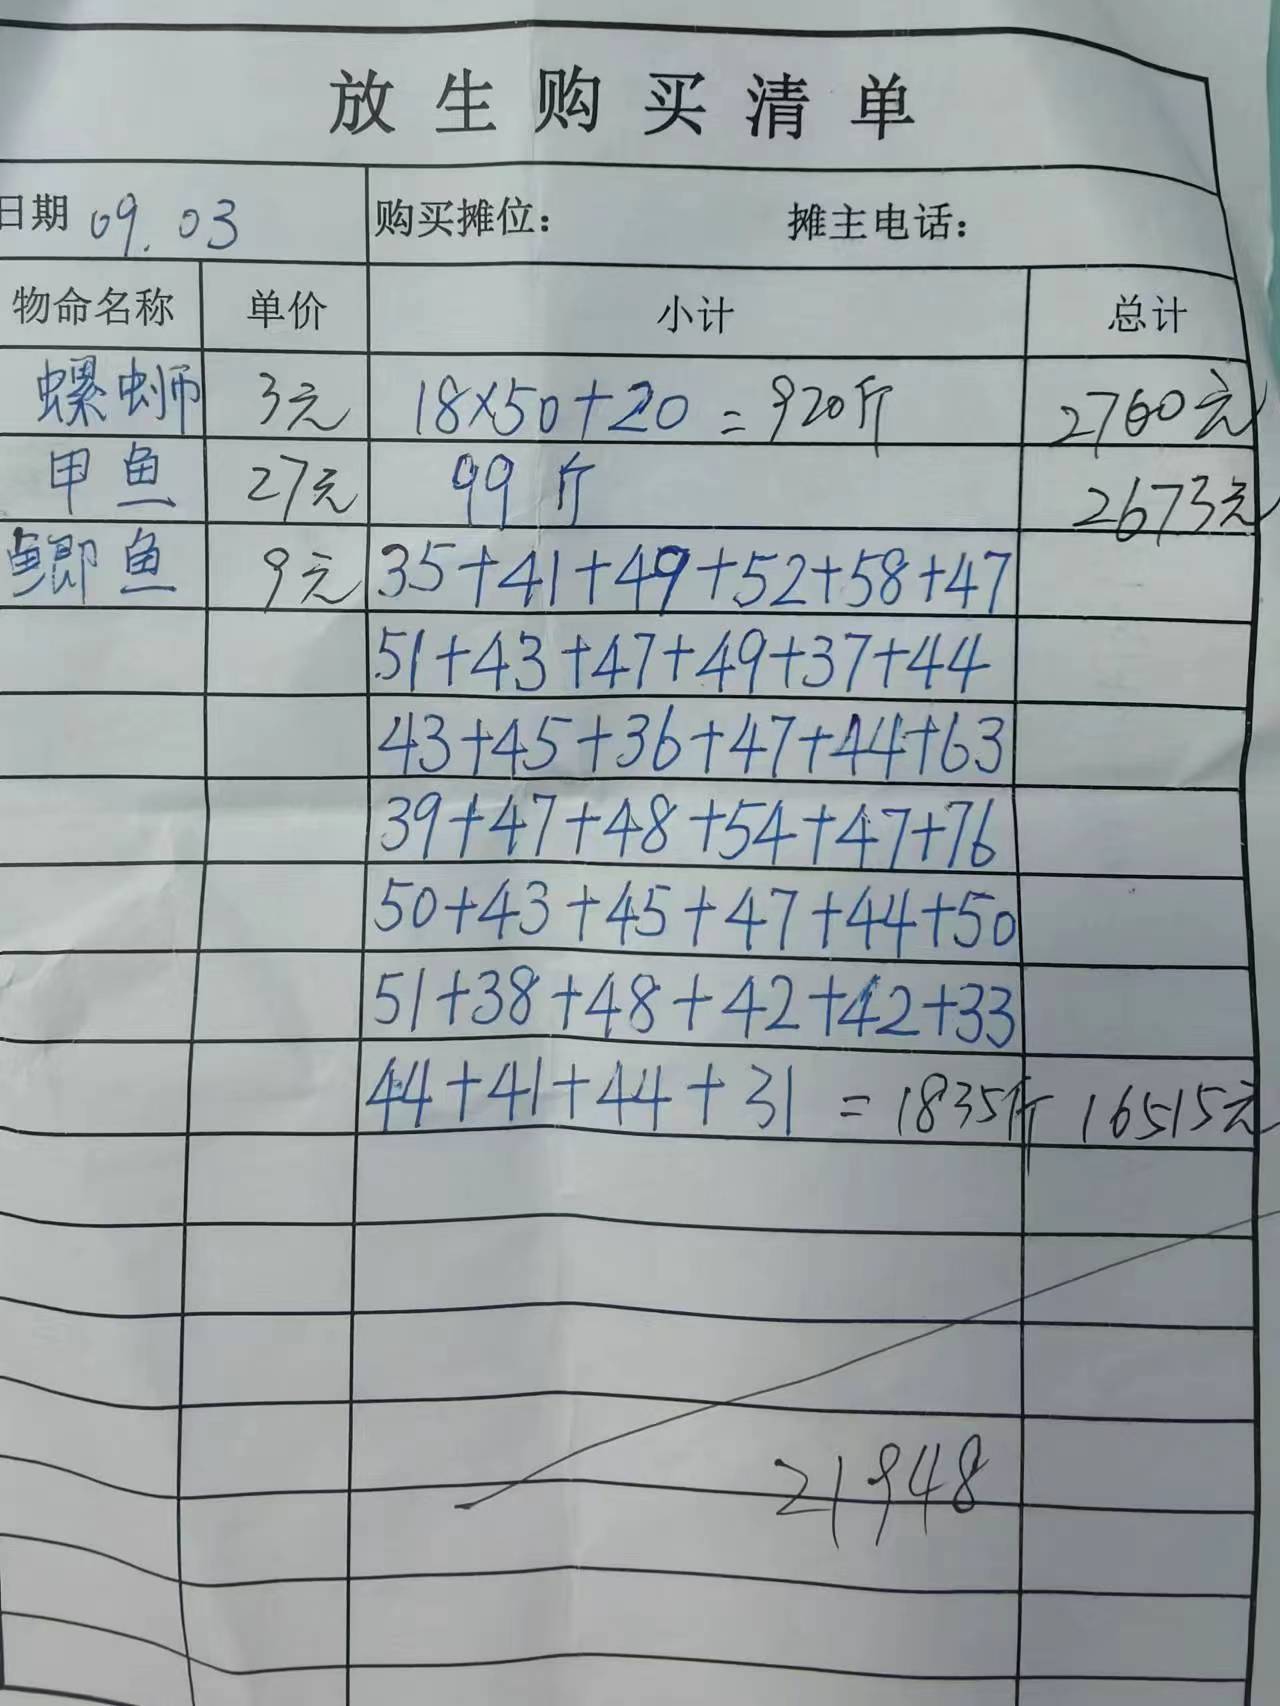 放生购买清单
日期 09.03 购买摊位： 摊主电话：
物命名称 单价 小计 总计
螺蛳 3元 18×50+20=920斤 2760元
甲鱼 27元 99斤 2673元
鲫鱼 9元 35+41+49+52+58+47
51+43+47+49+37+44
43+45+36+47+44+63
39+47+48+54+47+76
50+43+45+47+44+50
51+38+48+42+42+33
44+41+44+31=1835斤 16515元
21948